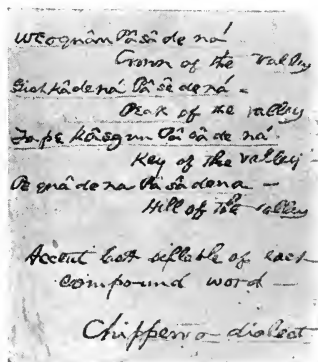 Weoquân Pâ sâ de ná
Crown of the Valley
Gish kâ de ná Pâ sê de ná -
Peak of the valley
Tape kâegun Pâ câ de ná
Key of the valley
Pe quâ de na Pâ sâ dena -
Hill of the valley
Accent last syllable of each
compound word -
Chippewa dialect